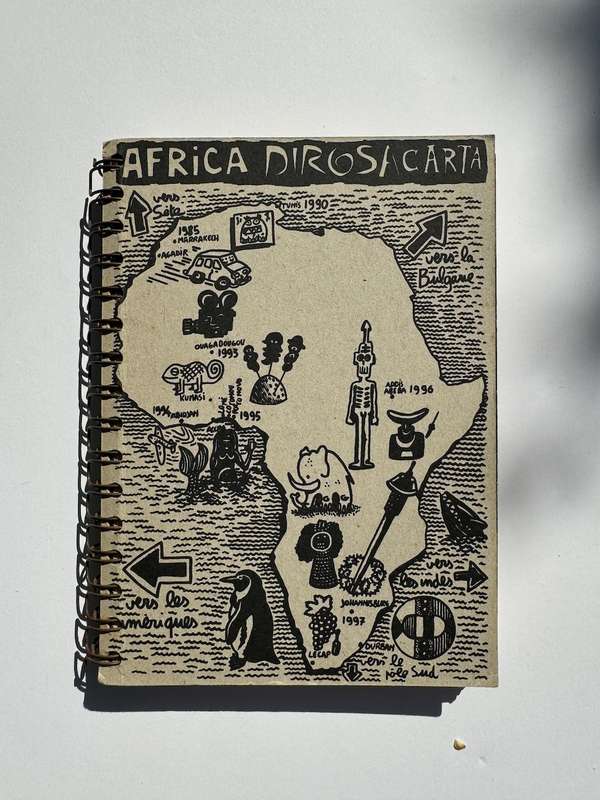 AFRICA DIROSA CARTA
vers
Sète
TUNIS 1990
1985
MARRAKECH
AGADIR
vers la
Bulgarie
OUAGADOUGOU
1993
KUMASI
ADDIS
ABEBA 1996
1994 ABIDJAN
1995
vers les
amériques
vers
les indes
JOHANNESBURG
1997
DURBAN
LE CAP
vers le
pôle Sud